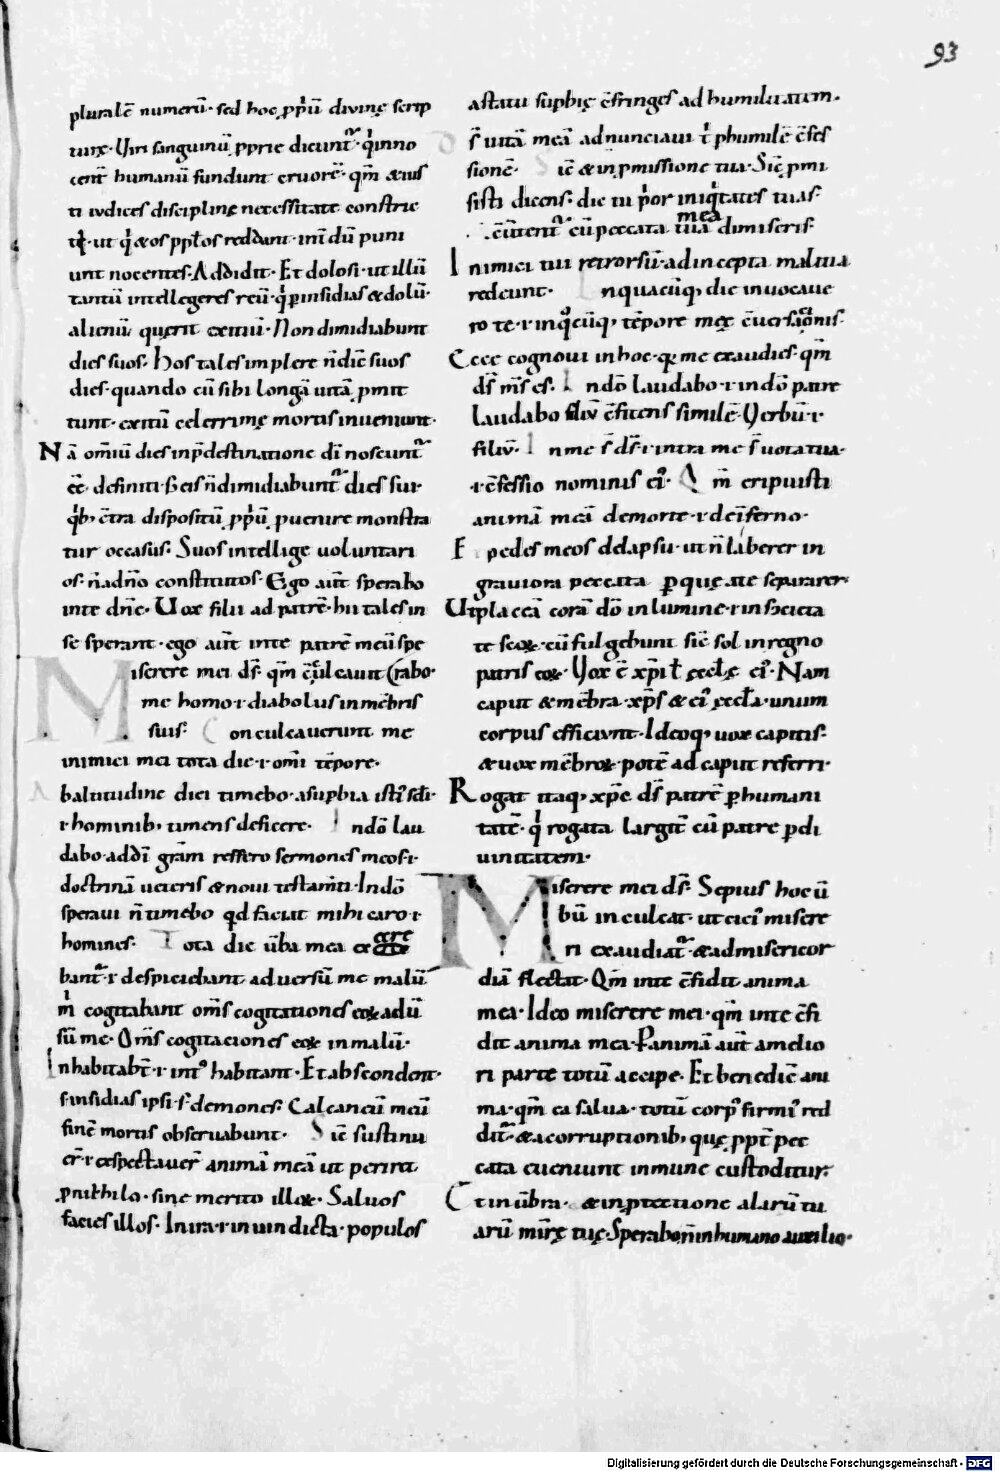 93
pluralē numerū· sed hoc ꝓpriū diuinę scrip
turę· Viri sanguinū ꝓprie dicunt᷑· qͥ inno
centē humanū fundunt cruorē· qm̄ & ius
ti iudices disciplinę necessitate constric
ti· ut qͥ & os ppl̄os reddant· int̄dū puni
unt nocentes· Addidit· Et dolosi· ut illū
tantū intellegeres reū· qͥ ꝑ insidias & dolū·
alienū querit exitiū· Non dimidiabunt
dies suos· Hos tales implere n̄ dic̄ suos
dies· quando cū sibi longā uitā ꝓmit
tunt· exitū celerrimę mortis inueniunt·
Nā om̄iū dies in p̄destinatione dī noscunt᷑
ēē definiti· s; eis n̄ dimidiabunt᷑ dies sui·
qͥb; c̄tra dispositū ꝓpriū puenire monstra
tur occasus· Suos intellige uoluntari
os· n̄ ad nō constitutos· Ego aut̄ sperabo
in te dn̄e· Uox filii ad patrē· hii tales in
se sperant· ego aut̄ in te patrē meū spe
Miserere mei ds̄· qm̄ c̄culcauit (rabo·
me homo· i· diabolus in mēbris
suis· Conculcauerunt me
inimici mei tota die· i· om̄i tēpore·
Ab altitudine diei timebo· a supbia istiꝰ scl̄i·
i· hominib; timens deficere· In dō lau
dabo· ad dī grām reffero sermones meos· i·
doctrinā ueteris & noui testam̄ti· In dō
speraui n̄ timebo qd faciat mihi caro· i·
homines· Tota die ūba mea execra
bant᷑· i· despiciebant aduersū me malū
m̄ cogitabant om̄s cogitationes eoꝝ adū
sū me· Om̄s cogitaciones eoꝝ in malū·
Inhabitabt̄· i· intꝰ habitant· Et abscondent·
s· insidias ipsi· s· demones· Calcaneū meū
finē mortis obseruabunt· Sic̄ sustinu
er̄· i· expectauer̄ animā meā ut periret
ꝓ nichilo· sine merito illoꝝ· Saluos
facies illos· In ira· i· in uindicta· populos
astatu supbię c̄fringes ad humilitatem·
ds̄ uitā meā adnunciaui t̄ p humilē c̄fes
sionē· Sic̄ & in ꝓmissione tua· Sic̄ ꝓmi
sisti dicens· dic tu prior iniqͥtates tuas·
c̄uertent᷑ cū peccata tua dimiseris·
mea
Inimici tui retrorsū· ad incepta mala sua
redeunt· In quacūq; die inuocaue
ro te· i· in qͦcūq; tēpore meę c̄uersionis·
Ecce cognoui in hoc· qͥ me exaudies· qm̄
ds̄ ms̄ es· In dō laudabo· i· in dō patre
laudabo filiū c̄fitens similē· Verbū· i·
filiū· In me s̄ ds̄· i· intra me s̄ uota tua·
i· c̄fessio nominis eiꝰ· Qm̄ eripuisti
animā meā de morte· i· de īferno·
Et pedes meos de lapsu· ut n̄ laberer in
grauiora peccata ꝑ quę a te separarer·
Ut placeā corā dō in lumine· i· in societa
te scōꝝ· cū fulgebunt sic̄ sol in regno
patris eoꝝ· Uox ē xp̄i t̄ ęccl̄ę eiꝰ· Nam
caput & mēbra· xp̄s & eiꝰ ęccl̄a· unum
corpus efficiunt· Ideoq; uox capitis·
& uox mēbroꝝ· potē ad caput referri·
Rogat itaq; xp̄c ds̄ patrē ꝑ humani
tatē· qͥ rogata largit̄ cū patre ꝑ di
uinitatem·
Miserere mei ds̄· Sepius hoc ū
bū inculcat· ut citiꝰ misere
ri exaudiat᷑· & ad misericor
diā flectat· Qm̄ in te c̄fidit anima
mea· Ideo miserere mei· qm̄ in te c̄fi
dit anima mea· P animā aut̄ a melio
ri parte totū accipe· Et benedic̄ ani
ma· qm̄ ea salua· totū corpꝰ firmiꝰ red
dit᷑· & a corruptionib; quę ꝓpt̄ pec
cata eueniunt inmune custoditur·
Et in ūbra· & in ꝓtectione alarū tu
arū· mīę tuę· Sperabo n̄ in humano auxilio·
Digitalisierung gefördert durch die Deutsche Forschungsgemeinschaft - DFG